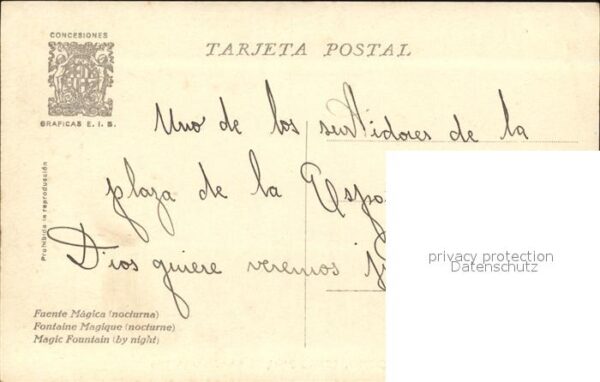 CONCESIONES
TARJETA POSTAL
GRAFICAS E. I. B.
Prohibida la reproducción
Uno de los surtidores de la
plaza de la
Dios quiere veremos
privacy protection
Datenschutz
Fuente Mágica (nocturna)
Fontaine Magique (nocturne)
Magic Fountain (by night)